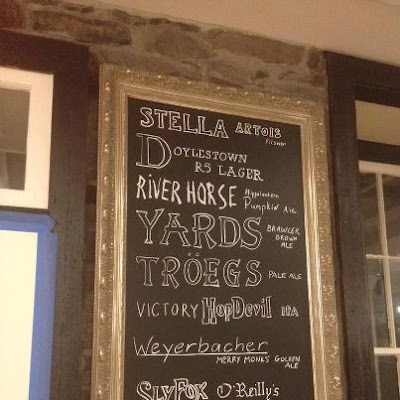 STELLA ARTOIS
PILSNER
DOYLESTOWN
R5 LAGER
RIVER HORSE Hippolantern
Pumpkin Ale
YARDS BRAWLER
BROWN
ALE
TRÖEGS PALE ALE
VICTORY HopDevil IPA
Weyerbacher
MERRY MONKS GOLDEN
ALE
SLYFOX O'Reilly's